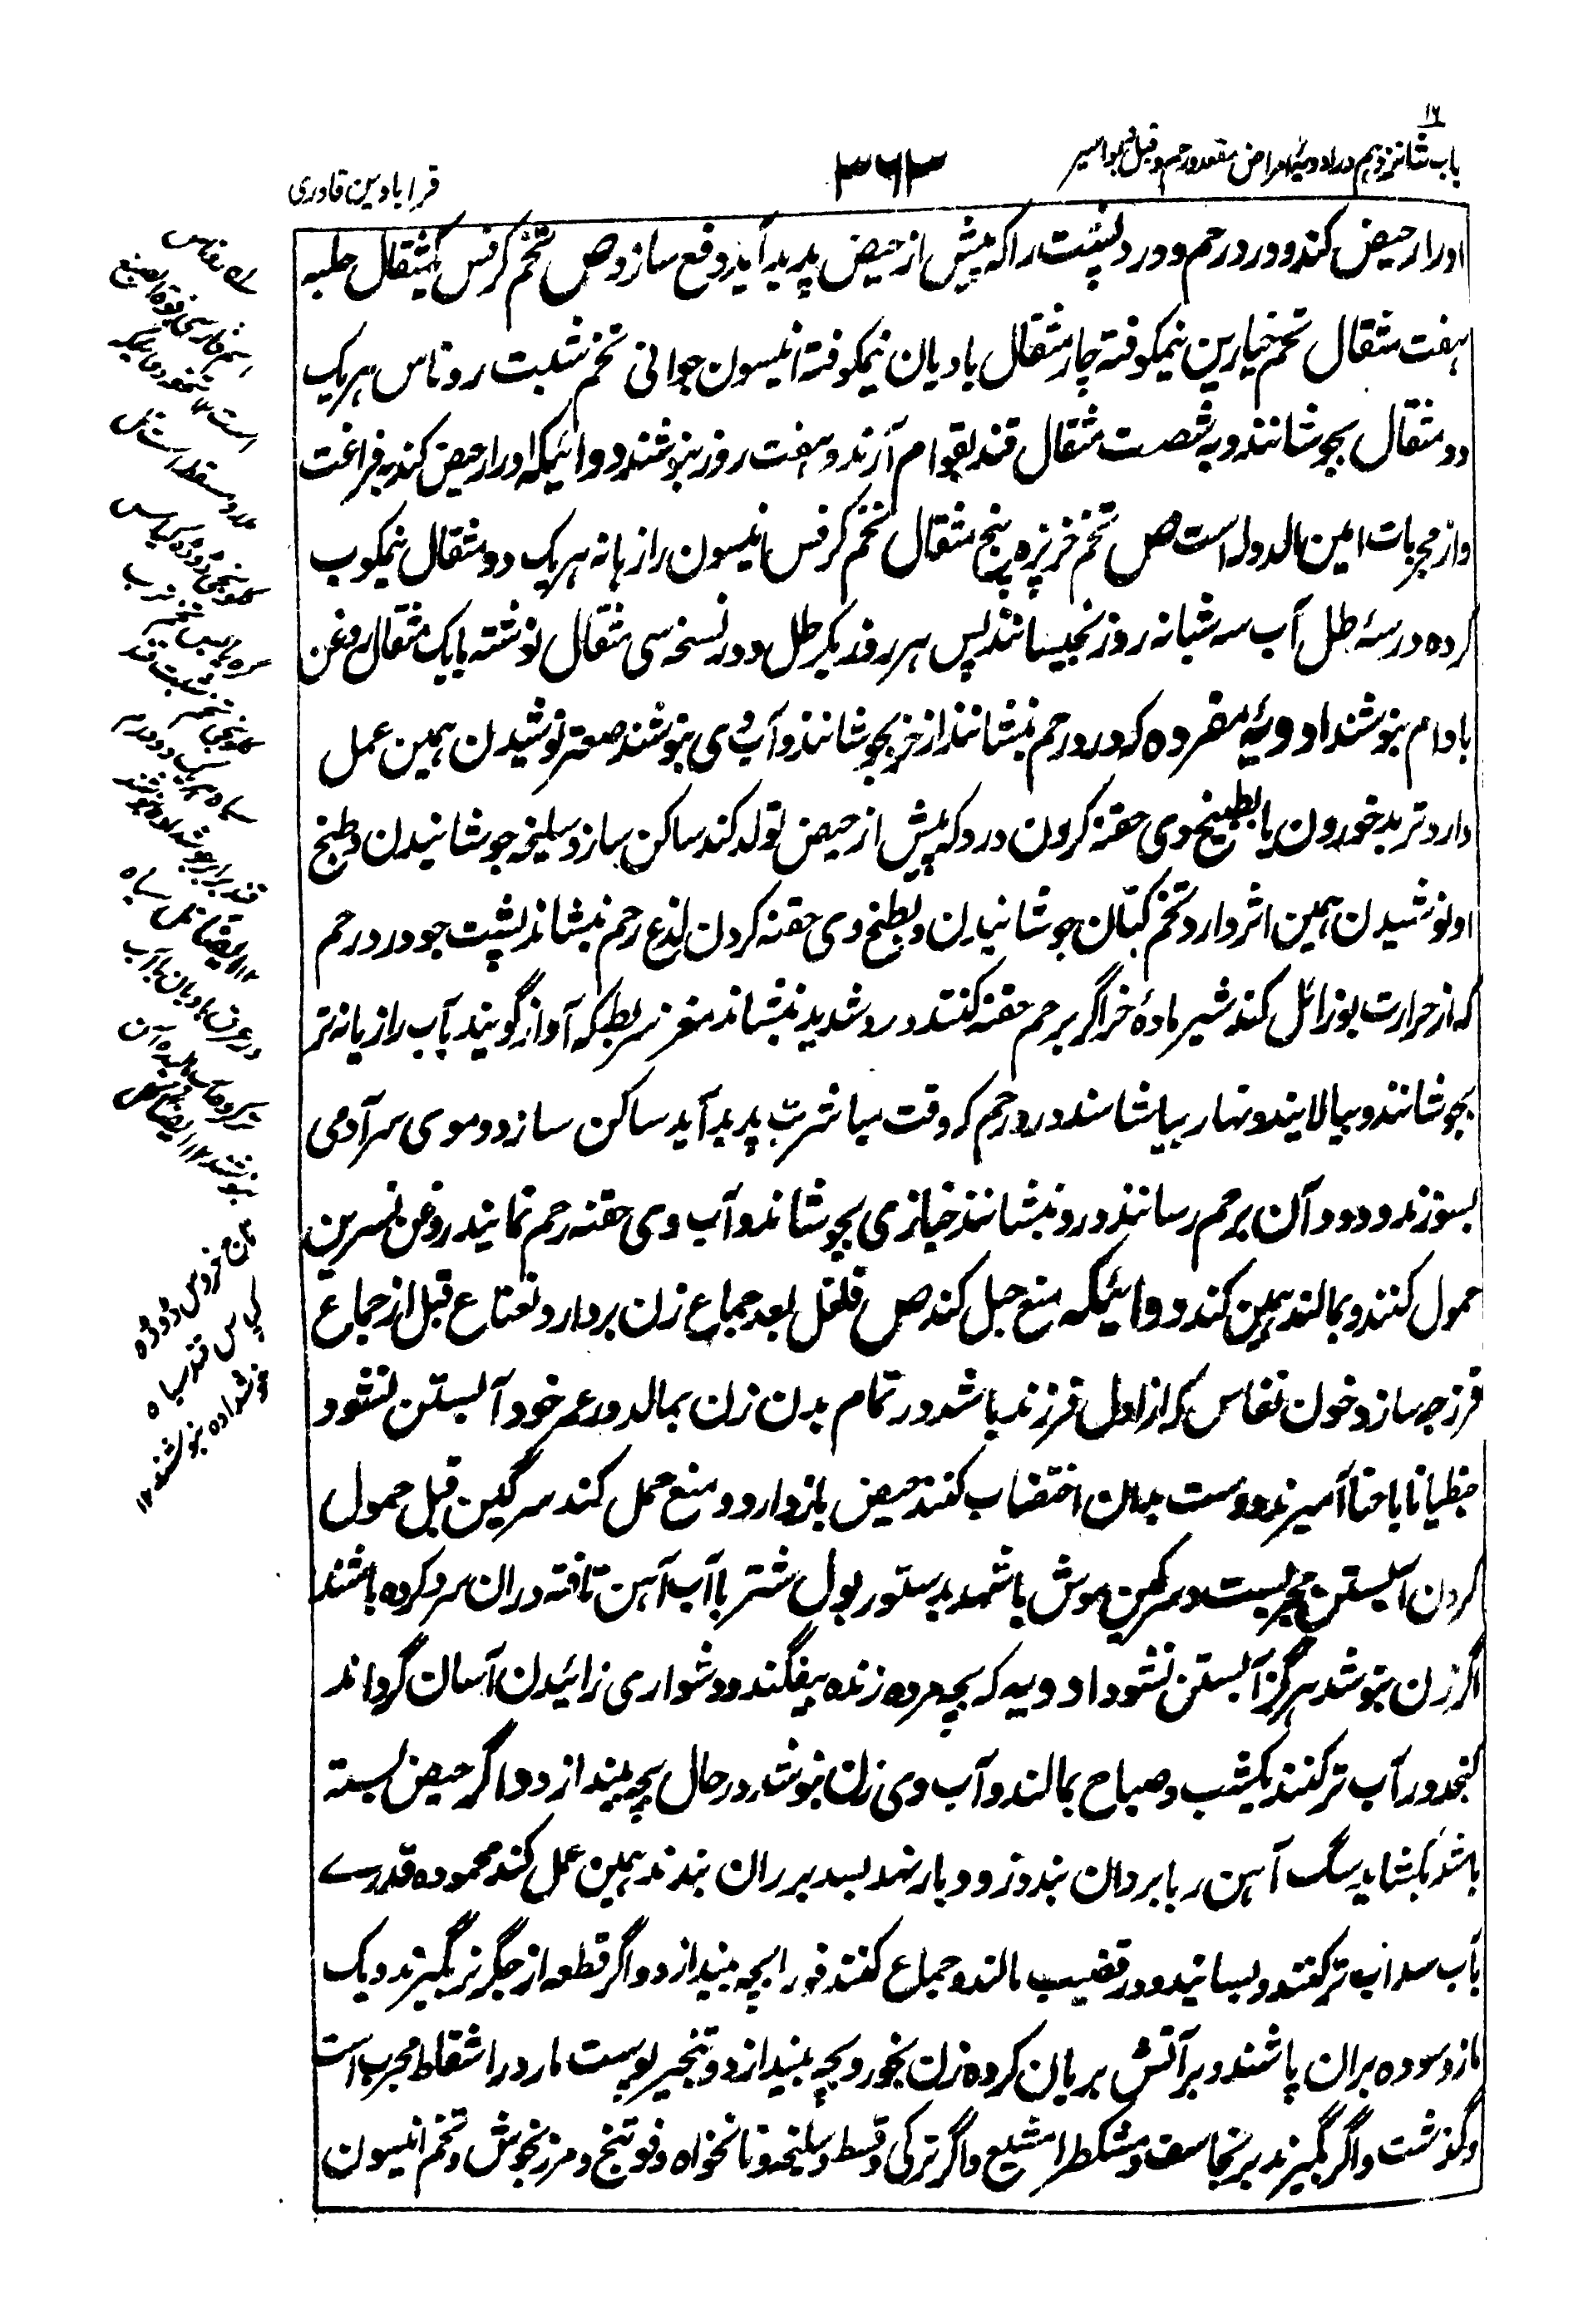 ۱۶
باب شانزدهم در ادویهٔ امراض مقعد و رحم و قبل و بواسیر
۳۶۳
قرابادین قادری
ادرار حیض کند و درد رحم و درد پشت را که پیش از حیض پدید آید دفع سازد ص تخم کرفس یکمثقال حلبه
هفت مثقال تخم خیارین نیمکوفته چار مثقال بادیان نیمکوفته انیسون جوانی تخم شبت روناس هریک
دو مثقال بجوشانند و به شصت مثقال قند بقوام آرند و هفت روز بنوشند دوائیکه ادرار حیض کند بفراغت
و از مجربات امین الدوله است ص تخم خرپزه پنج مثقال تخم کرفس انیسون رازیانه هریک دو مثقال نیمکوب
کرده در سه رطل آب سه شبانه روز بخیسانند پس هر روز یکرطل و در نسخه سی مثقال نوشته با یک مثقال روغن
بادام بنوشند ادویهٔ مفرده که درد رحم بنشانند ازخر بجوشانند و آب وی بنوشند صعتر نوشیدن همین عمل
دارد تربد خوردن یا بطبیخ وی حقنه کردن درد که پیش از حیض تولد کند ساکن سازد سلیخه جوشانیدن و طبخ
او نوشیدن همین اثر دارد تخم کتان جوشانیدن و بطبخ وی حقنه کردن لذع رحم بنشاند پشیت جو درد رحم
که از حرارت بود زائل کند شیر مادهٔ خر اگر برحم حقنه کنند درد شدید بنشاند مغز سر بط که آواز گویند بآب رازیانه تر
بجوشانند و بپالایند و نهار بیاشامند درد رحم که وقت مباشرت پدید آید ساکن سازد و موی سر آدمی
بسوزند و دود آن برحم رسانند درد بنشانند خبازی بجوشاند و آب وی حقنه رحم نمایند روغن نسرین
حمول کنند و بمالند همین کند دوائیکه منع حبل کند ص فلفل بعد جماع زن بردارد نعناع قبل از جماع
فرزجه سازد خون نفاس که از اول فرزند باشد در تمام بدن زن بمالد در عمر خود آبستن نشود
جنطیانا با حنا آمیزند و دست بدان اختضاب کنند حیض بازدارد و منع حمل کند سرگین فیل حمول
کردن آبستن مجربست و سرگین موش با شهد بدستور بول شتر با آب آهن تافته دران سرد کرده باشند
اگر زن بنوشد هرگز آبستن نشود ادویه که بچه مرده زنده بیفگند و دشواری زائیدن آسان گرداند
کنجد در آب تر کنند یکشب و صباح بمالند و آب وی زن بنوشد در حال بچه بیندازد و اگر حیض بسته
باشد بکشاید سنگ آهن ربا بر ران بندد زود بار نهد بسد بر ران بندند همین عمل کند محموده قدرے
بآب سداب تر کنند و بسایند و در قضیب مالند و جماع کنند فورا بچه بیندازد و اگر قطعه از جگر نر بگیرند و یک
مازو سوده بران پاشند و بر آتش بریان کرده زن بخورد بچه بیندازد و تبخیر پوست مار در اسقاط مجرب است
و گذشت و اگر بگیرند برنجاسف و مشکطرامشیع و اگر ترکی و قسط و سلیخه و نانخواه و فوتنج و مرزنجوش و تخم انیسون
تاج خروس ڈوڈہ
کپاس قند سیاہ
جوشدادہ بنوشند ۱۲